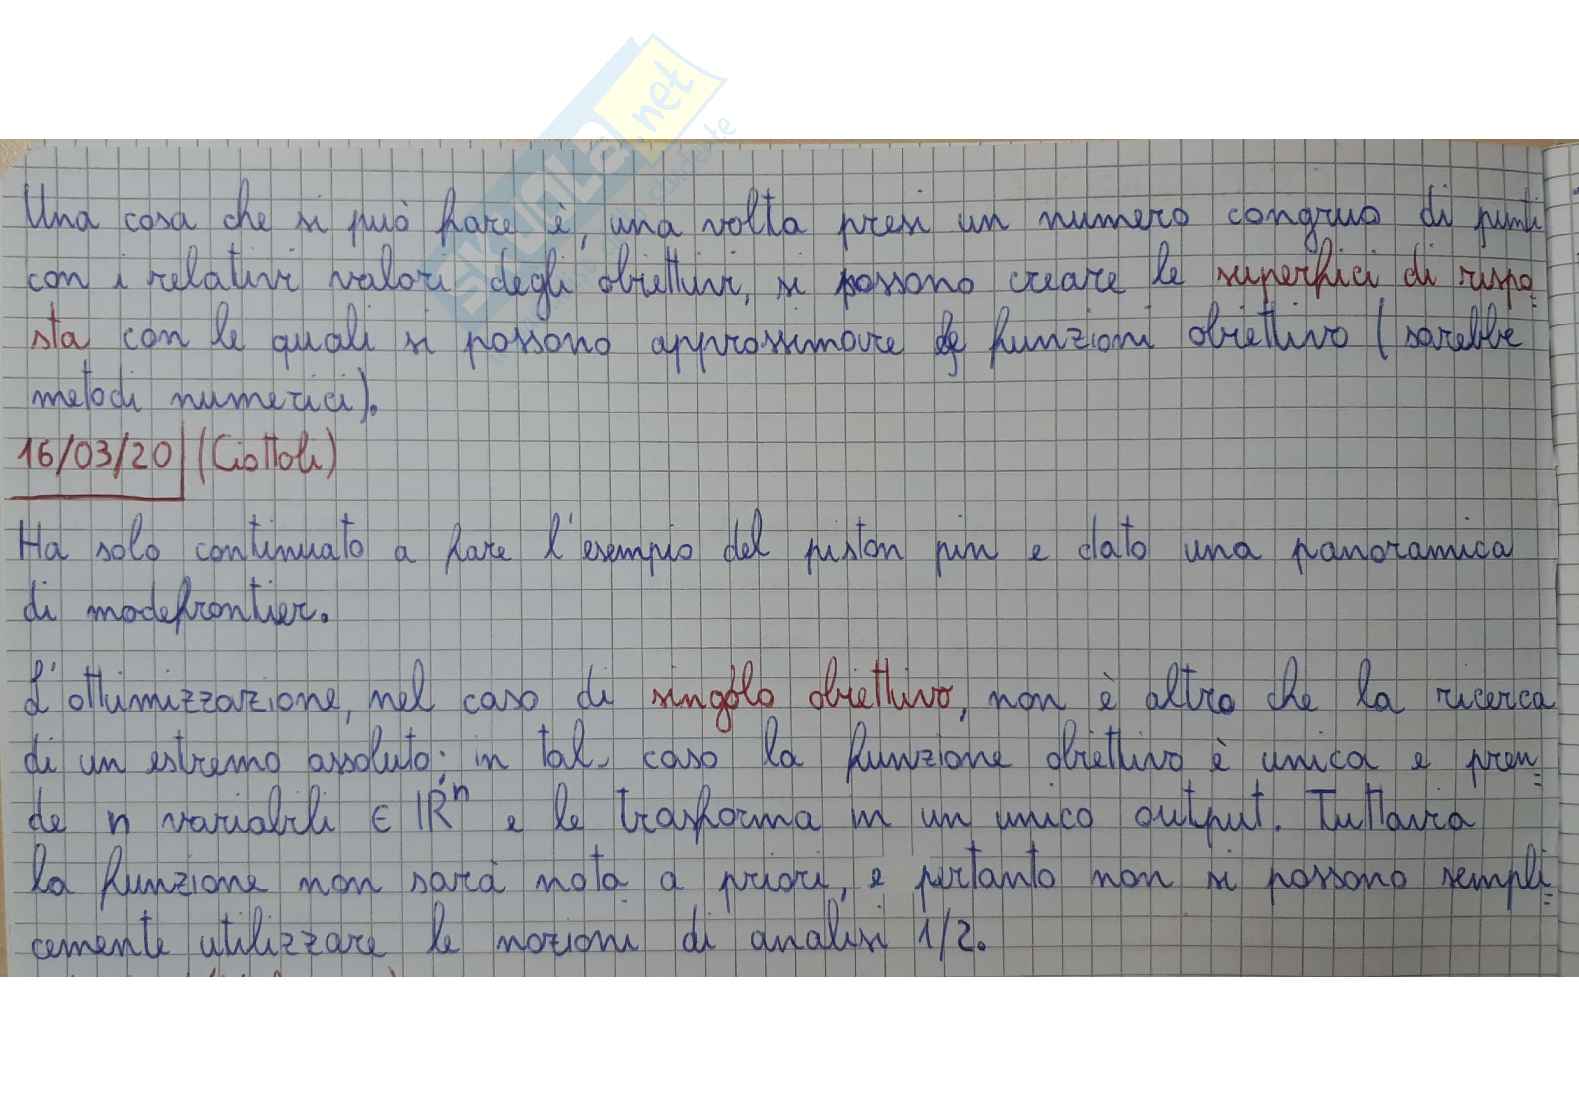 SKUOLA.net
Una cosa che si può fare è, una volta presi un numero congruo di punti
con i relativi valori degli obiettivi, si possono creare le superfici di rispo=
sta con le quali si possono approssimare le funzioni obiettivo (sarebbe
metodi numerici).
16/03/20 (Ciottoli)
Ha solo continuato a fare l'esempio del piston pin e dato una panoramica
di modefrontier.
L'ottimizzazione, nel caso di singolo obiettivo, non è altro che la ricerca
di un estremo assoluto; in tal caso la funzione obiettivo è unica e pren=
de n variabili ∈ ℝⁿ e le trasforma in un unico output. Tuttavia
la funzione non sarà nota a priori, e pertanto non si possono sempli=
cemente utilizzare le nozioni di analisi 1/2.